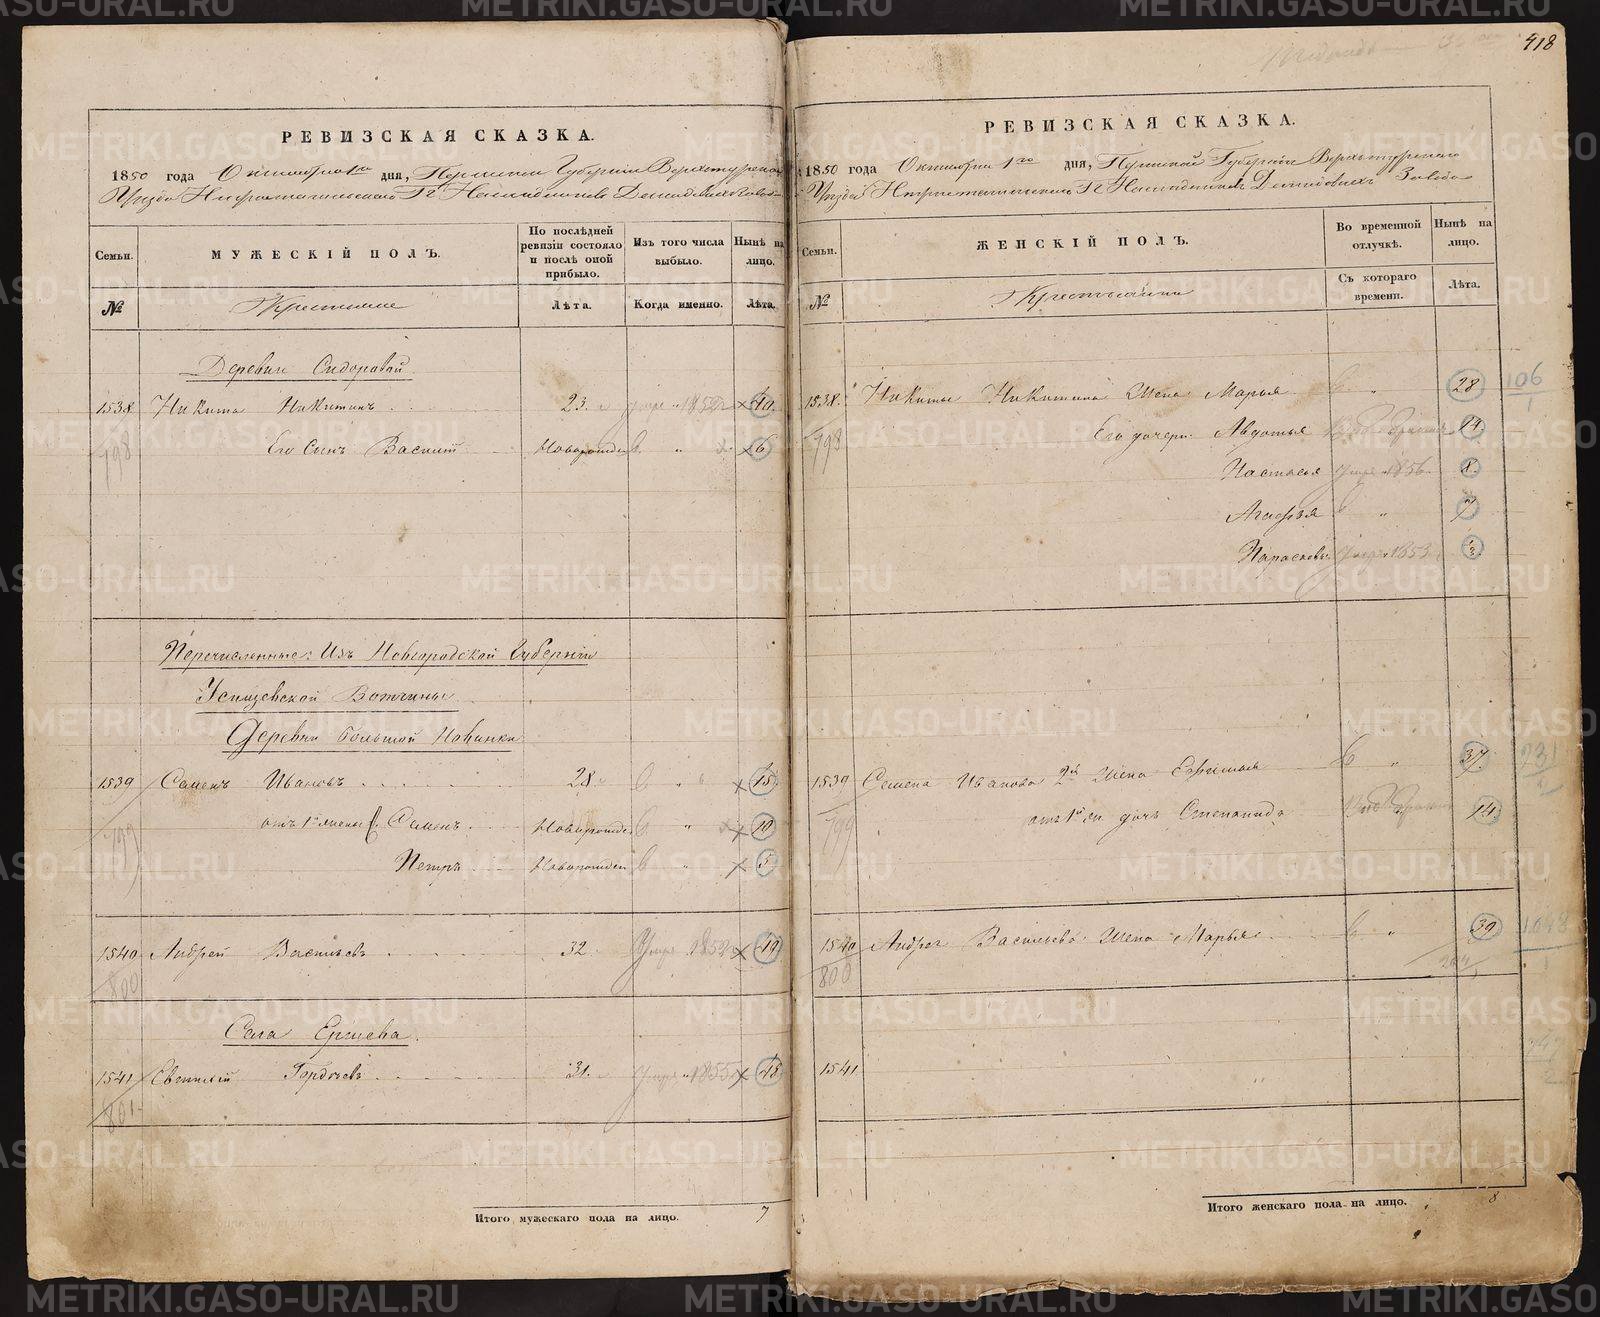 РЕВИЗСКАЯ СКАЗКА.
1850 года Октября 1го дня, Пермской Губерніи Верхотурскаго
Уѣзда Нижнетагильскаго Гг Наслѣдниковъ Демидовыхъ Завода
Семьи.
МУЖЕСКІЙ ПОЛЪ.
По послѣдней ревизіи состояло и послѣ оной прибыло.
Изъ того числа выбыло.
Нынѣ на лицо.
№
Крестьяне
Лѣта.
Когда именно.
Лѣта.
Деревни Сидоровой
1538 Никита Никитинъ 23 Умре 1852 40
798 Его Сынъ Василій Новорожден 6
Перечисленные: Изъ Новгородской Губерніи
Вотчины
Деревни большой Новинки
1539 Семенъ Ивановъ 28
799 отъ 1й жены Семенъ Новорожден 10
Петръ Новорожден 5
1540 Андрей Васильевъ 32 Умре 1852
800
Села
1541 Гордѣевъ 31 Умре 1855
801
Итого мужескаго пола на лицо. 7
418
РЕВИЗСКАЯ СКАЗКА.
1850 года Октября 1го дня, Пермской Губерніи Верхотурскаго
Уѣзда Нижнетагильскаго Гг Наслѣдниковъ Демидовыхъ Завода
Семьи.
ЖЕНСКІЙ ПОЛЪ.
Во временной отлучкѣ.
Нынѣ на лицо.
№
Крестьянки
Съ котораго времени.
Лѣта.
1538 Никиты Никитина Жена Марья 28 106
798 Его дочери Авдотья 14
Настасья Умре 1856 8
Агафья 7
Парасковья Умре 1853
1539 Семена Иванова 2я Жена 37 231
799 отъ 1й же дочь Степанида 14
1540 Андрея Васильева Жена Марья 39 1048
800
1541
Итого женскаго пола на лицо. 8
METRIKI.GASO-URAL.RU